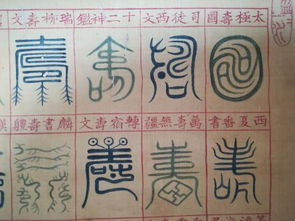 太極壽圖
司徒西文
十二神鑑
瑞柳壽文
西夏審書
萬壽無疆
轉宿壽文
麟書壽體